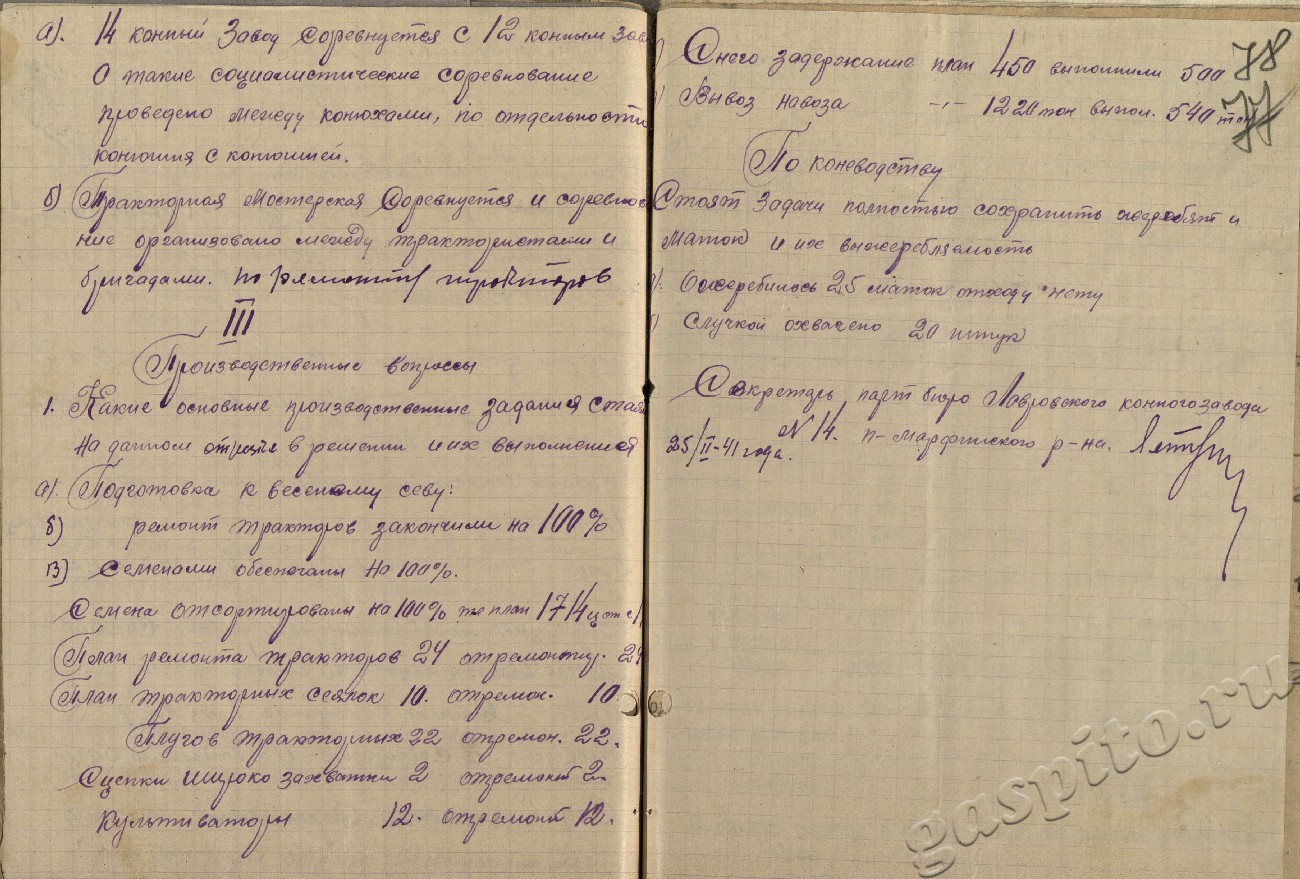 а). 14 конный Завод Соревнуется с 12 конным зав
О такие социалистические соревнование
проведено между конюхами, по отдельности
конюшня с конюшней.
б) Тракторная Мостерская Соревнуется и соревнов
ние организовано между трактористами и
бригадами. по ремонту тракторов
III
Производственные вопросы
1. Какие основные производственные задания стая
На данном в решении и их выполнения
а). Подготовка к весеному севу:
б) ремонт тракторов закончили на 100%
в) Семенами обеспечаны На 100%.
Семена отсортированы на 100% план 1714
План ремонта тракторов 24 отремонтир. 24
План тракторных сеялок 10. отремон. 10.
Плугов тракторных 22 отремон. 22.
Сцепки широко захватки 2 отремонт 2
Культиваторы 12. отремонт 12.
78
77
Снего задержание план 450 выполнили 500
Вывоз навоза -„- 1220 тон выпол. 540 тон
По коневодству
Стоят Задачи полностью сохранить жеребят и
маток и их выжеребляемость
Ожеребилось 25 маток отходу нету
Случкой охвачено 20 штук
Секретарь парт бюро Лавровского конного завода
N 14. п-Марфинского р-на.
25/II-41 года.
gaspito.ru